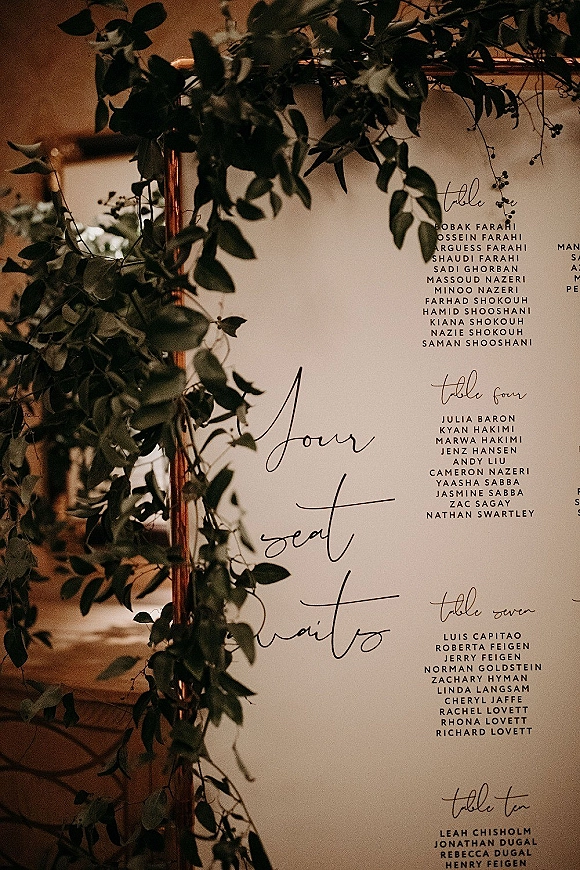 Your
seat
awaits
table one
BOBAK FARAHI
HOSSEIN FARAHI
ARGUESS FARAHI
SHAUDI FARAHI
SADI GHORBAN
MASSOUD NAZERI
MINOO NAZERI
FARHAD SHOKOUH
HAMID SHOOSHANI
KIANA SHOKOUH
NAZIE SHOKOUH
SAMAN SHOOSHANI
table four
JULIA BARON
KYAN HAKIMI
MARWA HAKIMI
JENZ HANSEN
ANDY LIU
CAMERON NAZERI
YAASHA SABBA
JASMINE SABBA
ZAC SAGAY
NATHAN SWARTLEY
table seven
LUIS CAPITAO
ROBERTA FEIGEN
JERRY FEIGEN
NORMAN GOLDSTEIN
ZACHARY HYMAN
LINDA LANGSAM
CHERYL JAFFE
RACHEL LOVETT
RHONA LOVETT
RICHARD LOVETT
table ten
LEAH CHISHOLM
JONATHAN DUGAL
REBECCA DUGAL
HENRY FEIGEN